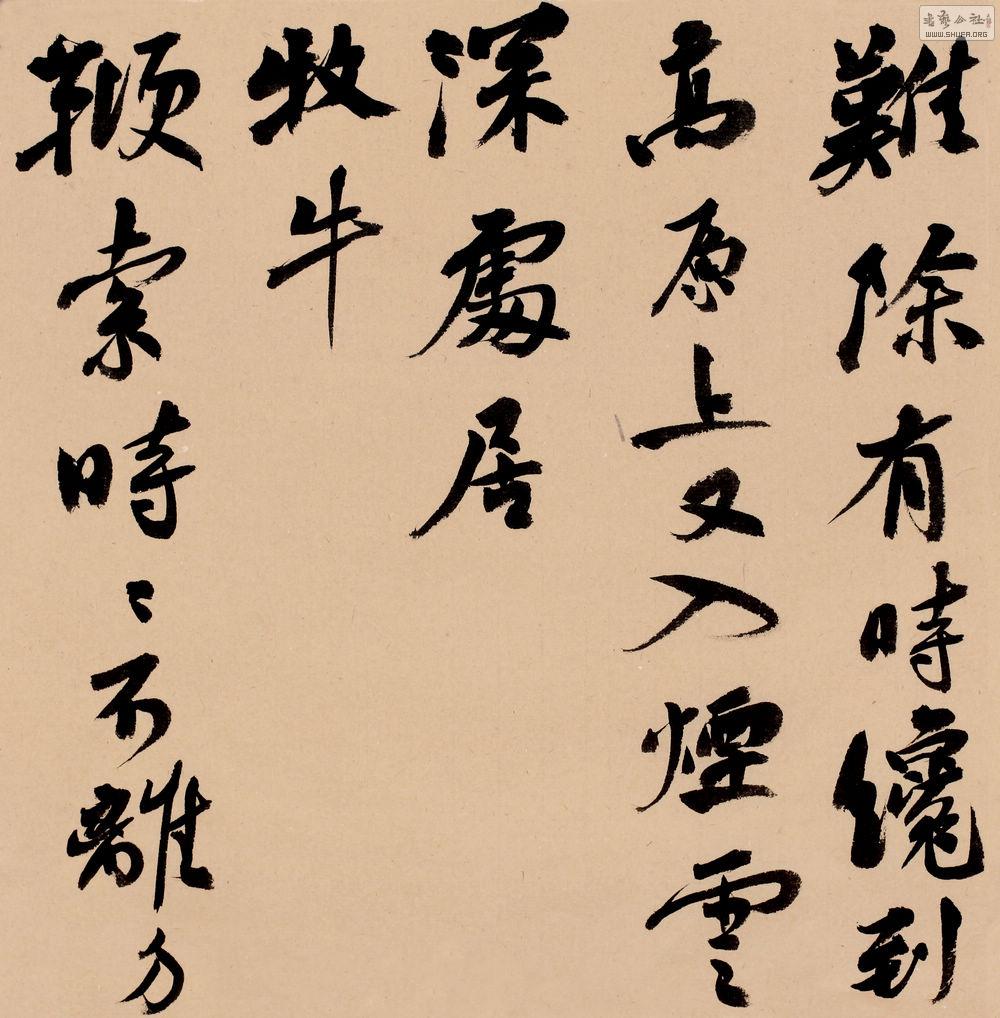 難除有時纔到
高原上又入煙雲
深處居
牧牛
鞭索時〻不離身
書藝公社
WWW.SHUFA.ORG